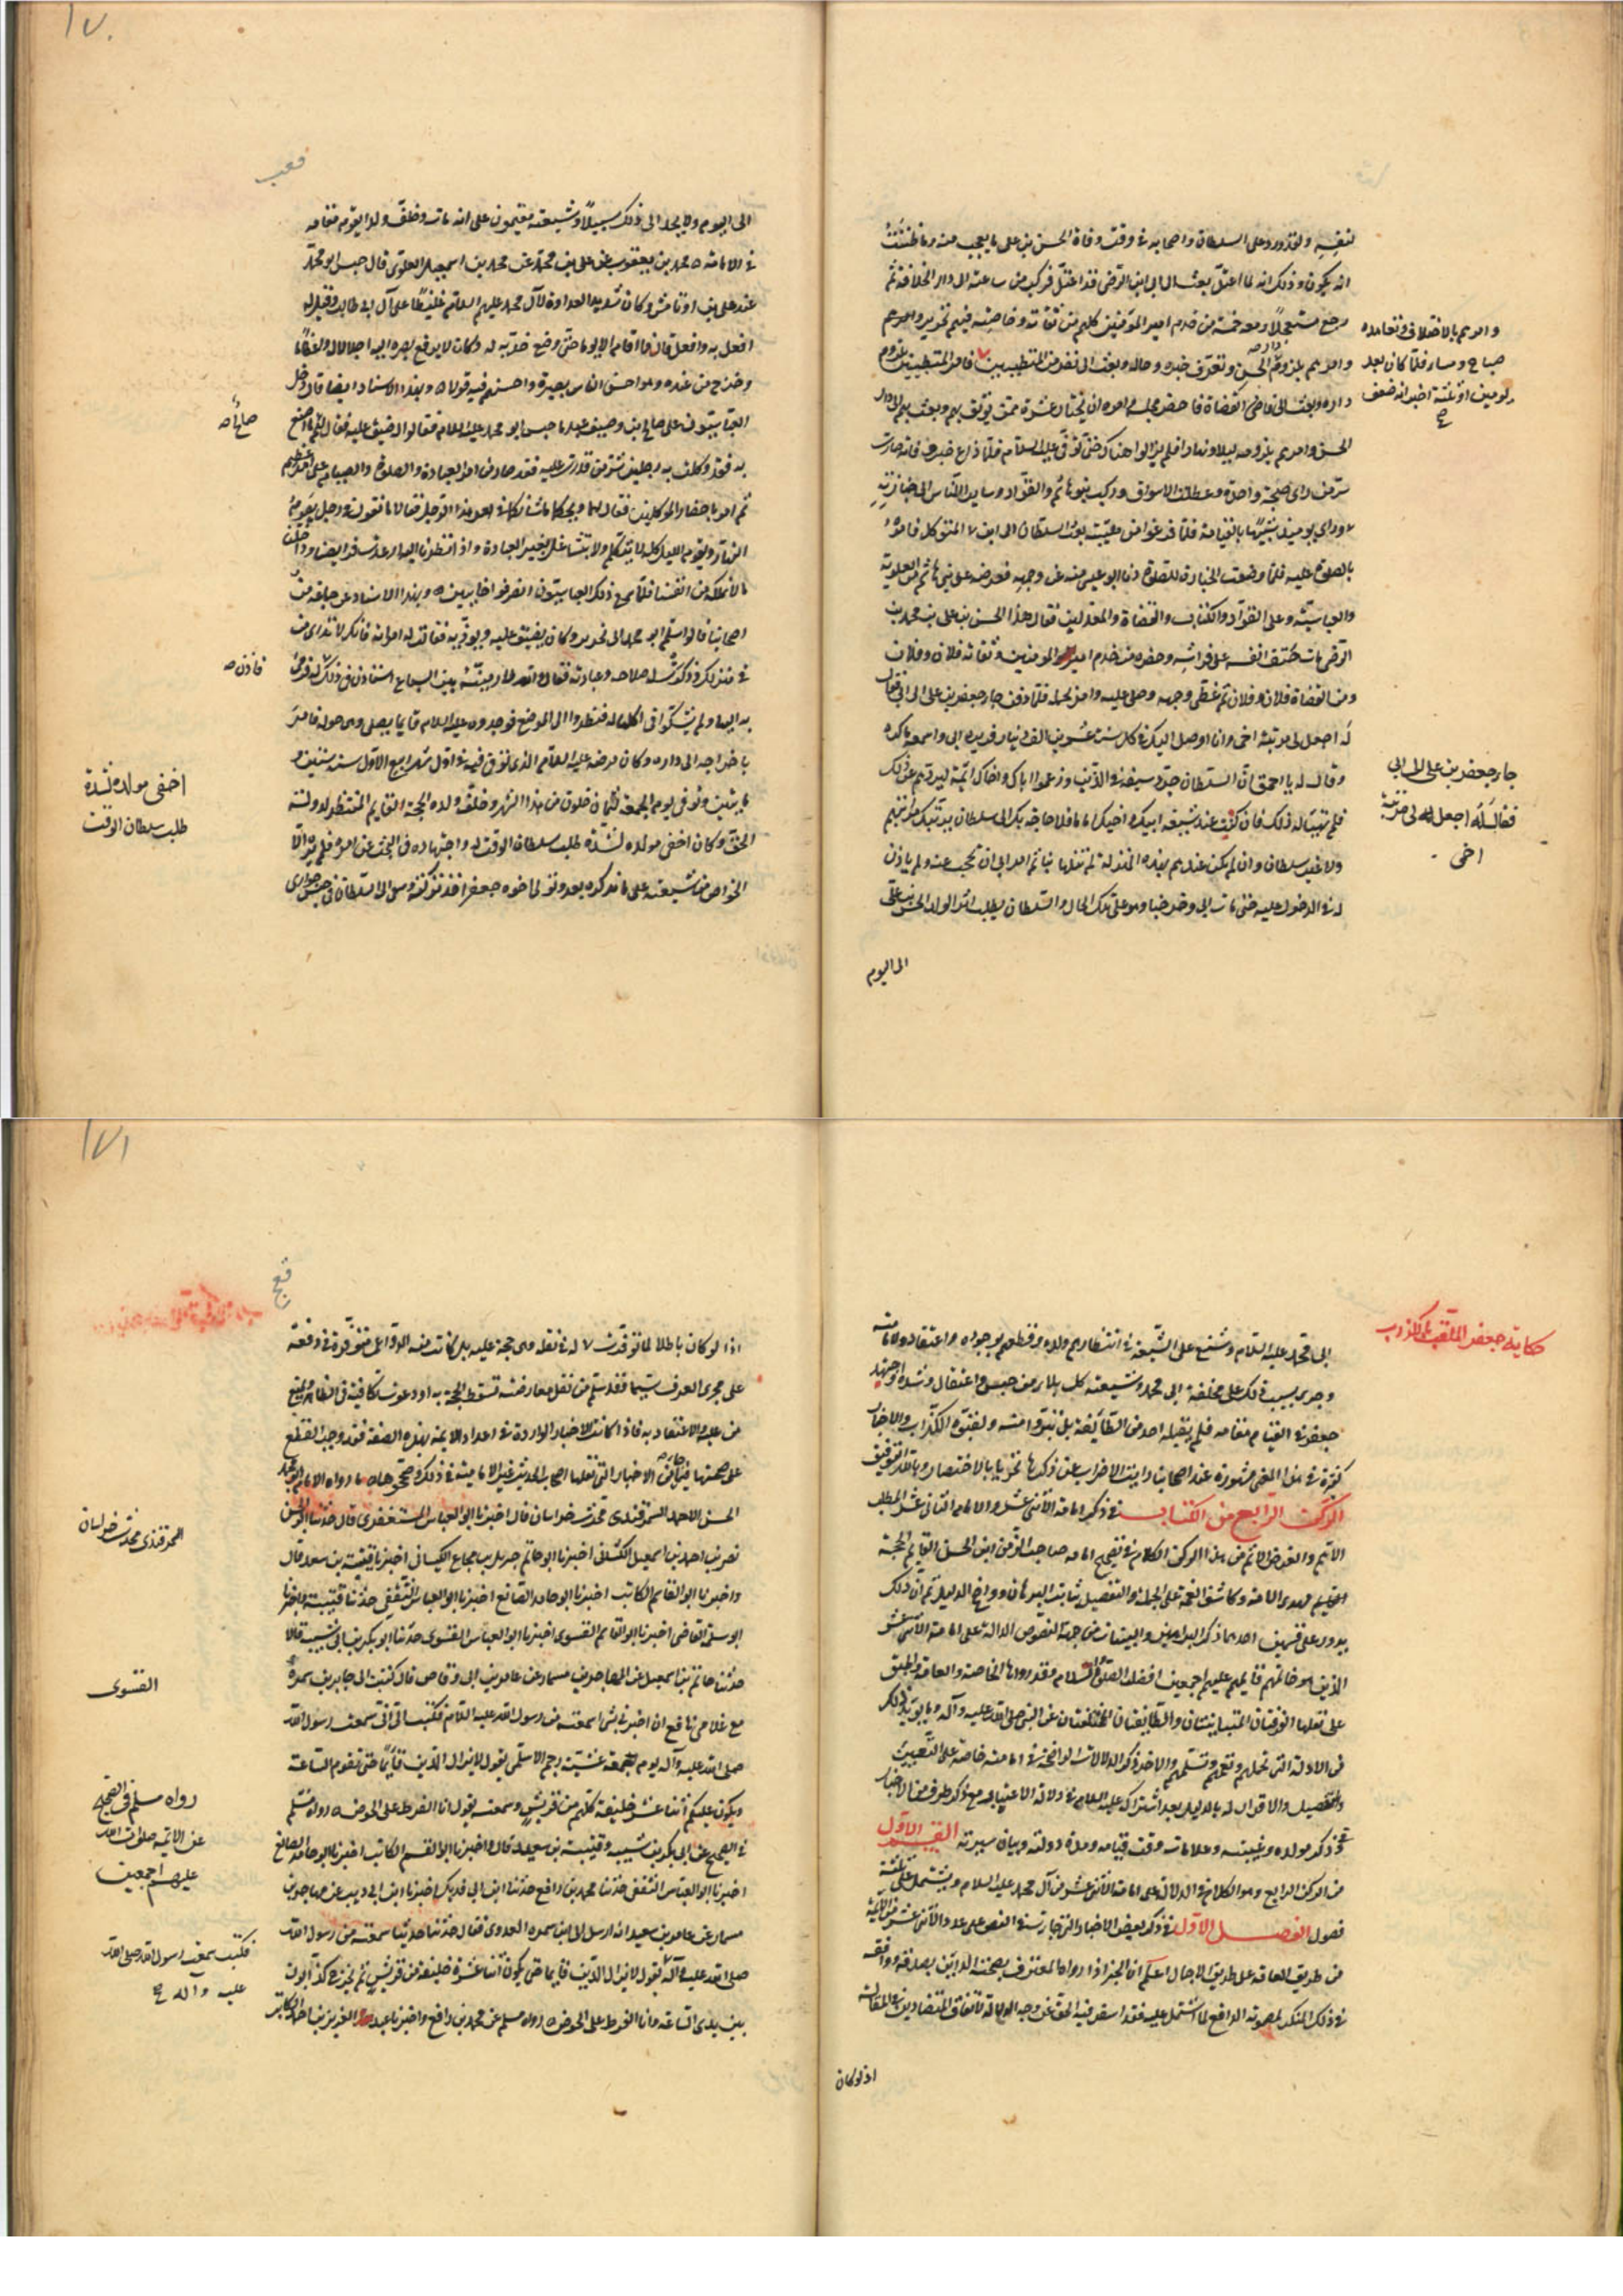 لنفسه ولقد ورد على السلطان واصحابه في وقت وفاة الحسن بن علي ما تعجبت منه وما ظننت
انه يكون وذلك انه لما اعتل بعث الى ابي ان ابن الرضي قد اعتل فركب من ساعته الى دار الخلافة ثم
رجع مستعجلا ومعه خمسة من خدم امير المؤمنين كلهم من ثقاته وخاصته فيهم نحرير وامرهم
وامرهم بلزوم دار الحسن وتعرف خبره وحاله وبعث الى نفر من المتطببين فامر المتطببين بلزوم
داره وبعث الى قاضي القضاة فاحضره مجلسه وامره ان يختار عشرة ممن يوثق بهم وبعث بهم الى دار
الحسن وامرهم بلزومه ليلا ونهارا فلم يزالوا هناك حتى توفي عليه السلام فلما ذاع خبر وفاته صارت
سر من راى ضجة واحدة وعطلت الاسواق وركب بنو هاشم والقواد وساير الناس الى جنازته
سر من راى يومئذ شبيها بالقيامة فلما فرغوا من تهيئته بعث السلطان الى ابن المتوكل فامره
بالصلوة عليه فلما وضعت الجنازة للصلوة دنا ابو عيسى منه عن وجهه فعرضه على بني هاشم من العلوية
والعباسية وعلى القواد والكتاب والقضاة والمعدلين فقال هذا الحسن بن علي بن محمد بن
الرضي مات حتف انفه على فراشه وحضره من خدم امير المومنين وثقاته فلان وفلان
ومن القضاة فلان وفلان ثم غطى وجهه وصلى عليه وامر بحمله فلما دفن جاء جعفر بن علي الى ابي فقال
له اجعل لي مرتبة اخي وانا اوصل اليك في كل سنة عشرين الف دينار فزبره ابي واسمعه ما كره
وقال له يا احمق ان السلطان جرد سيفه في الذين زعموا اباك واخاك ائمة ليردهم عن ذلك
فلم يتهيا له ذلك فان كنت عند شيعة ابيك واخيك اماما فلا حاجة بك الى سلطان يرتبك مراتبهم
ولا غير سلطان وان لم تكن عندهم بهذه المنزلة لم تنلها بنا ثم امر ابي ان تحجب عنه ولم ياذن
له في الدخول عليه حتى مات ابي وخرجنا وهو على تلك الحال والسلطان يطلب اثر الولد الحسن بن علي
الى اليوم
وامرهم بالاختلاف وتعاهده
صباح ومساء فلما كان بعد
يومين او ثلثة اخبر انه ضعف
جاء جعفر بن علي الى ابي
فقال له اجعل لي مرتبة
اخي
١٧٠
قعب
الى اليوم ولا يجد الى ذلك سبيلا وشيعته مقيمون على انه مات وخلف ولدا يقوم مقامه
في الامامة محمد بن يعقوب عن علي بن محمد عن محمد بن اسمعيل العلوي قال حبس ابو محمد
عند علي بن اوتامش وكان شديد العداوة لآل محمد عليهم السلام غليظا على آل ابي طالب وقيل له
افعل به وافعل قال فما اقام الا يوما حتى وضع خديه له وكان لا يرفع بصره اليه اجلالا له واعظاما
وخرج من عنده وهو احسن الناس بصيرة واحسنهم فيه قولا وبهذا الاسناد ايضا قال دخل
العباسيون على صالح بن وصيف عند ما حبس ابو محمد عليه السلام فقالوا له ضيق عليه فقال لهم ما اصنع
به قد وكلت به رجلين شر من قدرت عليه فقد صارا من العبادة والصلوة والصيام على امر عظيم
ثم امر باحضار الموكلين فقال لهما ويحكما ما شانكما في امر هذا الرجل فقالا ما نقول في رجل يصوم
النهار ويقوم الليل كله لا يتكلم ولا يتشاغل بغير العبادة واذا نظرنا اليه ارعدت فرايصنا وداخلنا
ما لا نملكه من انفسنا فلما سمع ذلك العباسيون انصرفوا خايبين وبهذا الاسناد عن جماعة من
اصحابنا قالوا سلم ابو محمد الى نحرير وكان يضيق عليه ويوذيه فقالت له امراته فانك لا تدري من
في منزلك وذكرت له صلاحه وعبادته فقال والله لارمينه بين السباع ثم استاذن في ذلك له فرمى
به اليها ولم يشكوا في اكلها له فنظروا الى الموضع فوجدوه عليه السلام قايما يصلي وهي حوله فامر
باخراجه الى داره وكان مرضه عليه السلام الذي توفي فيه في اول شهر ربيع الاول سنة ستين و
مايتين وتوفي يوم الجمعة لثمان خلون من هذا الشهر وخلف ولده الحجة القايم المنتظر لدولة
الحق وكان اخفى مولده لشدة طلب سلطان الوقت له واجتهاده في البحث عن امره فلم يره الا
الخواص من شيعته على ما نذكره بعد وتولى اخوه جعفر اخذ تركته وسعى الى السلطان في حبس جواري
صالح
فاذن
اخفى مولده لشدة
طلب سلطان الوقت
حكاية جعفر الملقب بالكذاب
ابي محمد عليه السلام وشنع على الشيعة في انتظارهم ولده وقطعهم بوجوده واعتقادهم لامامته
وجرى بسبب ذلك على مخلفة ابي محمد وشيعته كل بلاء من حبس واعتقال وشدة واجتهد
جعفر في القيام مقامه فلم يقبله احد من الطايفة بل تبروا منه ولقبوه الكذاب والاخبار
كثيرة في هذا المعنى مشهورة عند اصحابنا رايت الاضراب عن ذكرها تحريا بالاختصار وبالله التوفيق
الركن الرابع من الكتاب في ذكر امامة الاثني عشر والامام الثاني عشر المطلب
الاتم والغرض الاهم من هذا الركن الكلام في تصحيح امامة صاحب الزمن ابن الحسن القايم الحجة
مهدي الامة وكاشف الغمة على الجملة والتفصيل ثابت البرهان وواضح الدليل ثم ان ذلك
يدور على قسمين احدهما ذكر البراهين والبينات من جهة النصوص الدالة على امامة الاثني عشر
الذين هو خاتمهم قايمهم عليهم اجمعين افضل الصلوة والسلام وقد رواها الخاصة والعامة واطبق
على نقلها الفرقتان المتباينتان والطايفتان المختلفتان عن النبي صلى الله عليه وآله وما يويد ذلك
من الادلة والاخر ذكر الدلالات الواضحة في امامته خاصة على التعيين
والتفصيل والاقرار له بالدليل بعد اشتراك عليه السلام في دلالة الاعتبار مع ذكر طرف من الاخبار
في ذكر مولده وغيبته وعلامات وقت قيامه ومدة دولته وبيان سيرته القسم الاول
من الركن الرابع وهو الكلام في الدلالة على امامة الاثني عشر من آل محمد عليه السلام ويشتمل على ثلثة
فصول الفصل الاول في ذكر بعض الاخبار التي جاءت في النص على عدد الاثني عشر من الايمة
من طريق العامة على طريق الاجمال اعلم ان الخبر اذا رواه المعترف بصحته الداين بصدقه ووافقه
في ذلك المنكر لمضمونه الدافع لما اشتمل عليه فقد اسفر فيه الحق عن وجه الدلالة لاتفاق المتضادين في المقالة
اذ لو كان
١٧١
قعج
اذا لو كان باطلا لما توفرت دواعي له في نقله وهي حجة عليه بل كانت منه الدواعي متوفرة في دفعه
على مجرى العرف سيما فقد سلم من نقل معارضته تسقط الحجة به او دعوى تكافيه في الظاهر ويمنع
من عليه والاعتقاد به فاذا كانت الاخبار الواردة في اعداد الايمة بهذه الصفة فقد وجب القطع
على صحتها فمن الاخبار التي نقلها اصحاب الحديث غير الامامية في ذلك وصححوها ما رواه الامام ابو محمد
الحسن بن احمد السمرقندي محدث خراسان قال اخبرنا ابو العباس المستغفري قال حدثنا ابو الحسن
نصر بن احمد بن اسمعيل الكشاني اخبرنا ابو حاتم جبريل بن مجاع الكشاني اخبرنا قتيبة بن سعيد قال
واخبرنا ابو القاسم الكاتب اخبرنا ابو حامد الصائغ اخبرنا ابو العباس الثقفي حدثنا قتيبة واخبرنا
ابو سلمة القاضي اخبرنا ابو القاسم الفسوي اخبرنا ابو العباس الفسوي حدثنا ابو بكر بن ابي شيبة قالا
حدثنا حاتم بن اسمعيل عن المهاجر بن مسمار عن عامر بن ابي وقاص قال كتبت الى جابر بن سمرة
مع غلامي نافع ان اخبرني بشي سمعته من رسول الله عليه السلام فكتب الي اني سمعت رسول الله
صلى الله عليه وآله يوم جمعة عشية رجم الاسلمي يقول لا يزال الدين قايما حتى تقوم الساعة
ويكون عليكم اثنا عشر خليفة كلهم من قريش وسمعته يقول انا الفرط على الحوض رواه مسلم
في الصحيح عن ابي بكر بن شيبه وقتيبة بن سعيد قال واخبرنا ابو القسم الكاتب اخبرنا ابو حامد الصائغ
اخبرنا ابو العباس الثقفي حدثنا محمد بن رافع حدثنا ابن ابي فديك اخبرنا ابن ابي ذيب عن مهاجر بن
مسمار عن عامر بن سعيد انه ارسل الى ابن سمره العدوي فقال حدثنا حديثا سمعته من رسول الله
صلى الله عليه وآله يقول لا يزال الدين قايما حتى يكون اثنا عشرة خليفة من قريش ثم يخرج كذابون
بين يدي الساعة وانا الفرط على الحوض رواه مسلم عن محمد بن رافع واخبرنا عبد العزيز بن احمد الكاتب
السمرقندي محدث خراسان
الفسوي
رواه مسلم في الصحيح
عن الايمة صلوات الله
عليهم اجمعين
فكتب سمعت رسول الله صلى الله
عليه واله